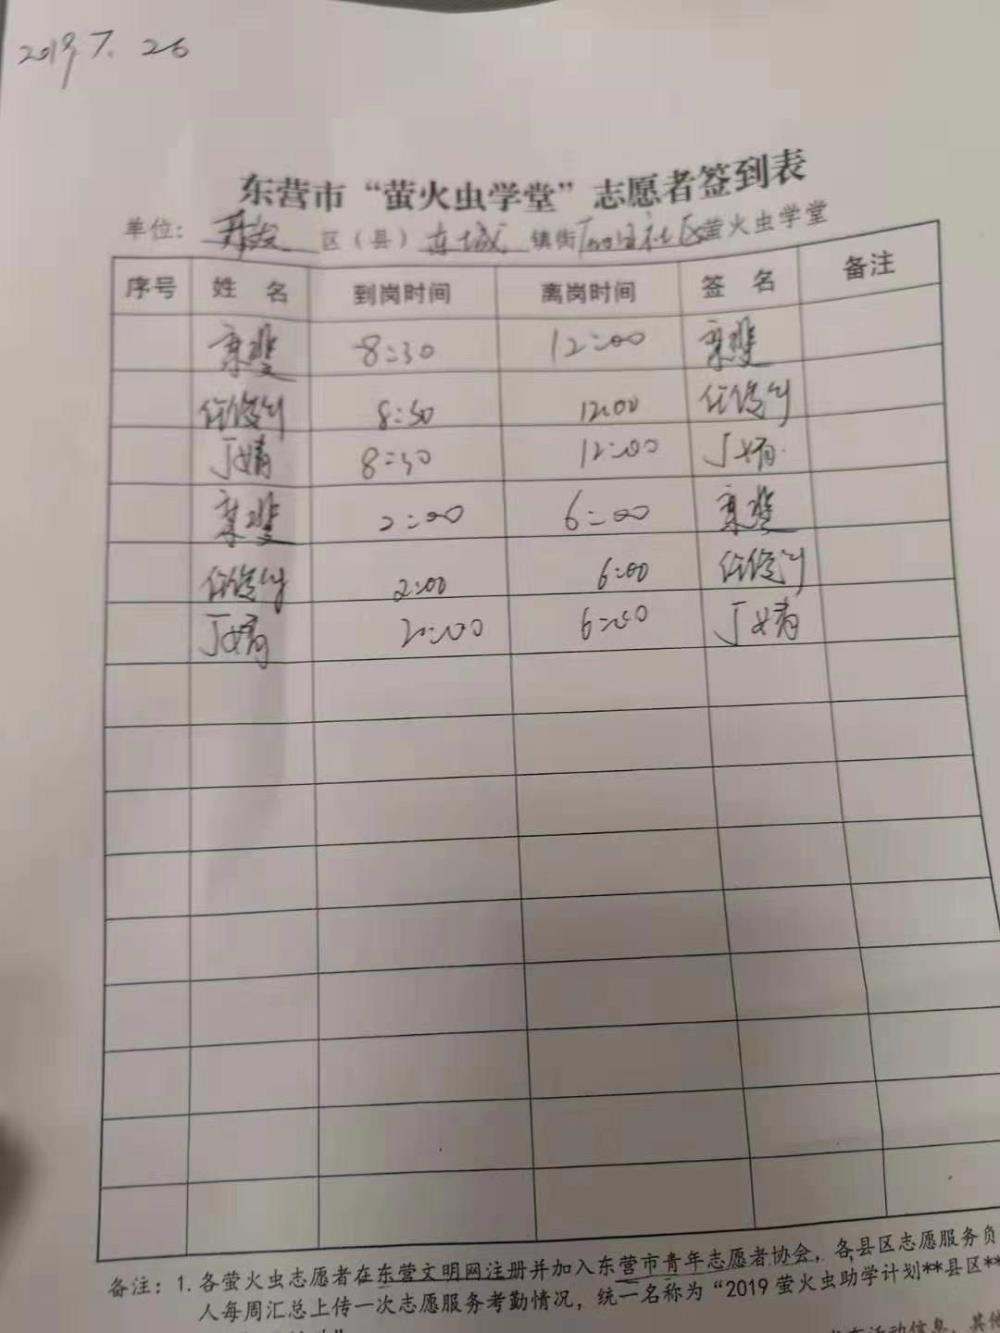 2019.7.26
东营市“萤火虫学堂”志愿者签到表
单位: 开发 区（县） 东城 镇街 社区萤火虫学堂
序号 姓名 到岗时间 离岗时间 签名 备注
8:30 12:00
任俊 8:30 12:00 任俊
丁婧 8:30 12:00 丁婧
2:00 6:00
任俊 2:00 6:00 任俊
丁婧 2:00 6:00 丁婧
备注: 1. 各萤火虫志愿者在东营文明网注册并加入东营市青年志愿者协会, 各县区志愿服务负
人每周汇总上传一次志愿服务考勤情况, 统一名称为“2019 萤火虫助学计划**县区**
活动信息, 其他